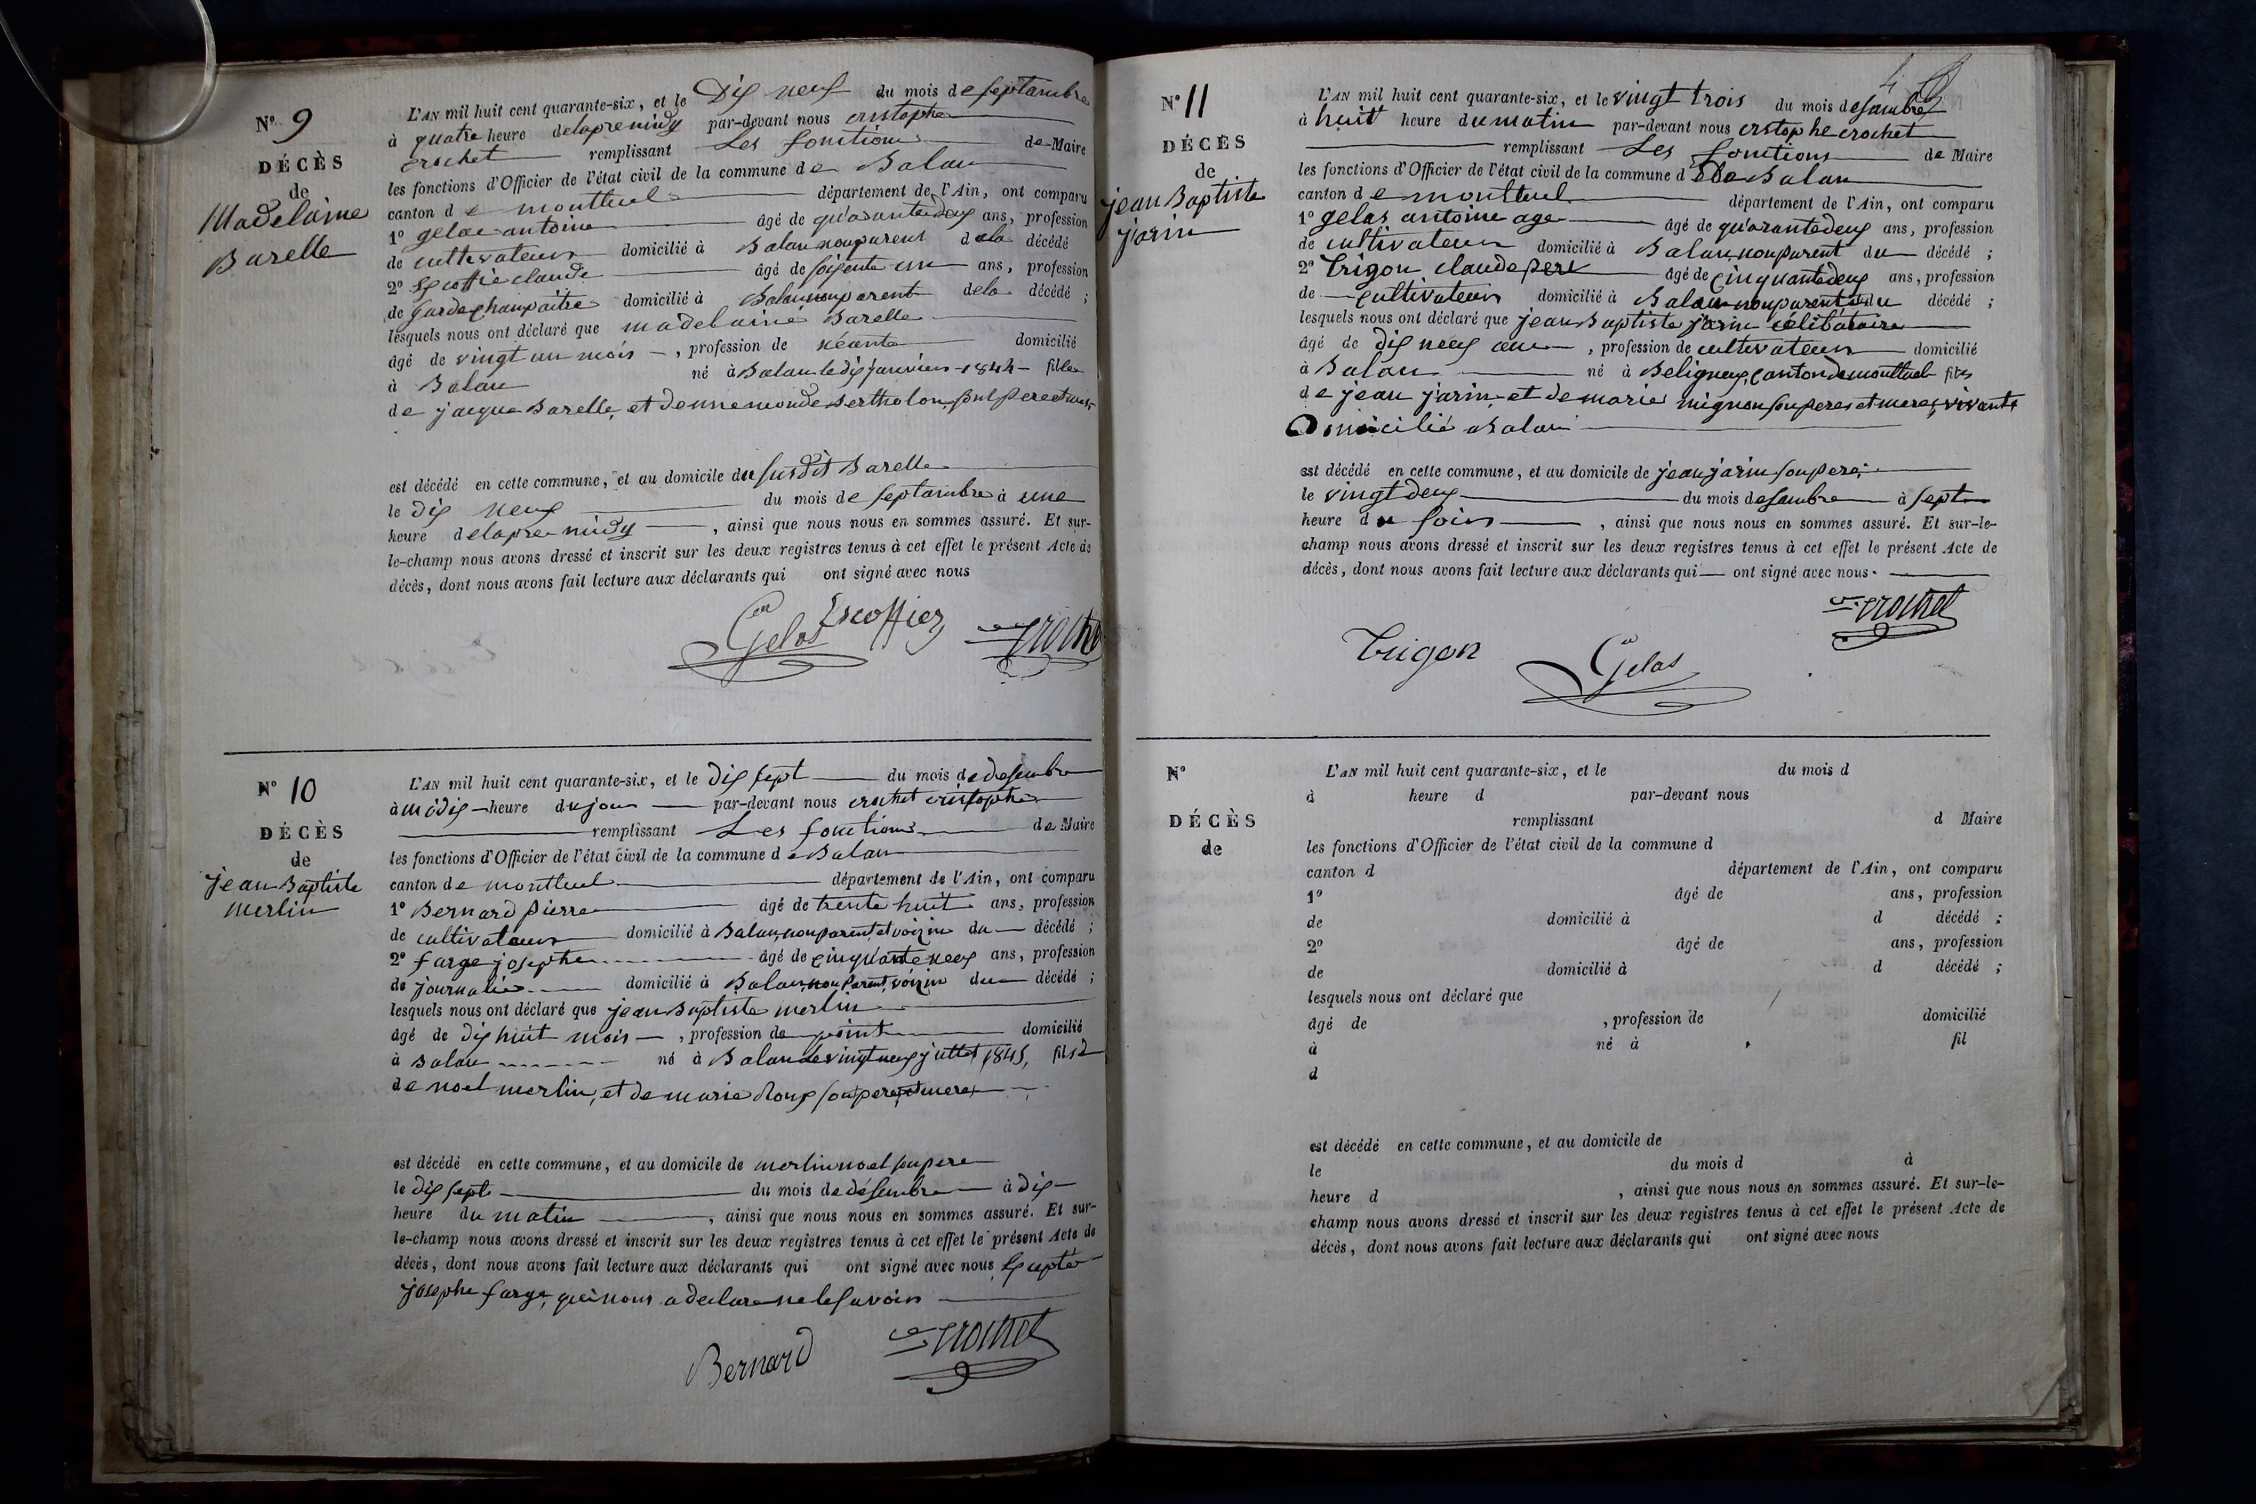 N° 9
DÉCÈS
de
Madelaine
Barelle
L'AN mil huit cent quarante-six, et le Dix neuf du mois de septambre
à quatre heure delapremidy par-devant nous cristophe
crochet remplissant Les fonctions de Maire
les fonctions d'Officier de l'état civil de la commune de Balan
canton de montluel département de l'Ain, ont comparu
1° gelas antoine âgé de quarantedeux ans, profession
de cultivateur domicilié à Balan nonparent dela décédé
2° Escoffié claude âgé de soixente un ans, profession
de gardechanpaitre domicilié à Balan nonparent dela décédé ;
lesquels nous ont déclaré que madelaine Barelle
âgé de vingt un mois, profession de néante domicilié
à Balan né à Balan le dix janvier 1844 fille
de jacque Barelle, et de ennemonde Bertholon,
est décédé en cette commune, et au domicile du susdit Barelle
le dix neuf du mois de septambre à une
heure delapremidy, ainsi que nous nous en sommes assuré. Et sur-
le-champ nous avons dressé et inscrit sur les deux registres tenus à cet effet le présent Acte de
décès, dont nous avons fait lecture aux déclarants qui ont signé avec nous
Gelas Escoffier crochet
N° 10
DÉCÈS
de
jean Baptiste
merlin
L'AN mil huit cent quarante-six, et le dix sept du mois de desembre
à midix heure du jour par-devant nous crochet cristophe
remplissant Les fonctions de Maire
les fonctions d'Officier de l'état civil de la commune de Balan
canton de montluel département de l'Ain, ont comparu
1° Bernard pierre âgé de trente huit ans, profession
de cultivateur domicilié à Balan, nonparent et voizin du décédé ;
2° farge josephe âgé de cinquante neuf ans, profession
de journalié domicilié à Balan, non parent, voizin du décédé ;
lesquels nous ont déclaré que jean Baptiste merlin
âgé de dix huit mois, profession de point domicilié
à Balan né à Balan le vingt neuf juillet 1845, fils
de noel merlin, et de marie Roux son pere et mere
est décédé en cette commune, et au domicile de merlin noel son pere
le dix sept du mois de désembre à dix
heure du matin, ainsi que nous nous en sommes assuré. Et sur-
le-champ nous avons dressé et inscrit sur les deux registres tenus à cet effet le présent Acte de
décès, dont nous avons fait lecture aux déclarants qui ont signé avec nous, Exepté
josephe farge, qui nous a declare ne le savoir
Bernard crochet
4
N° 11
DÉCÈS
de
jean Baptiste
jarin
L'AN mil huit cent quarante-six, et le vingt trois du mois desambre
à huit heure du matin par-devant nous cristophe crochet
remplissant Les fonctions de Maire
les fonctions d'Officier de l'état civil de la commune d de Balan
canton de montluel département de l'Ain, ont comparu
1° gelas antoine age âgé de quarantedeux ans, profession
de cultivateur domicilié à Balan, nonparent du décédé ;
2° Trigon claude pere âgé de cinquantedeux ans, profession
de cultivateur domicilié à Balan nonparent du décédé ;
lesquels nous ont déclaré que jean Baptiste jarin célibataire
âgé de dix neuf ans, profession de cultivateur domicilié
à Balan né à Beligneux, canton de montluel fils
de jean jarin et de marie mignon son pere et mere, vivants
Domicilié a Balan
est décédé en cette commune, et au domicile de jean jarin son pere
le vingtdeux du mois desambre à sept
heure du soir, ainsi que nous nous en sommes assuré. Et sur-le-
champ nous avons dressé et inscrit sur les deux registres tenus à cet effet le présent Acte de
décès, dont nous avons fait lecture aux déclarants qui ont signé avec nous.
crochet
Trigon Gelas
N°
DÉCÈS
de
L'AN mil huit cent quarante-six, et le du mois d
à heure d par-devant nous
remplissant d Maire
les fonctions d'Officier de l'état civil de la commune d
canton d département de l'Ain, ont comparu
1° âgé de ans, profession
de domicilié à d décédé ;
2° âgé de ans, profession
de domicilié à d décédé ;
lesquels nous ont déclaré que
âgé de , profession de domicilié
à né à fil
d
est décédé en cette commune, et au domicile de
le du mois d à
heure d , ainsi que nous nous en sommes assuré. Et sur-le-
champ nous avons dressé et inscrit sur les deux registres tenus à cet effet le présent Acte de
décès, dont nous avons fait lecture aux déclarants qui ont signé avec nous